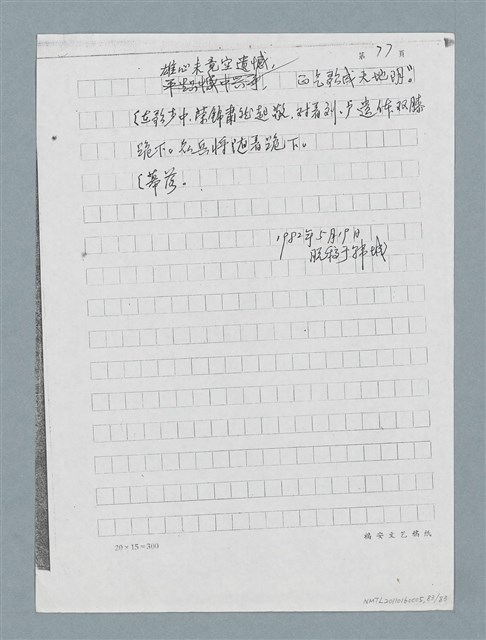 第 77 页
雄心未竟空遗憾，
正气歌成天地明”。
（在歌声中，陈锦肃然起敬，对着刘、卢遗体双膝
跪下。众兵将随着跪下。
（幕落。
1982年5月19日
脱稿于韩城
20×15=300
瑞安文艺稿纸
NMTL20110160005, 83/83